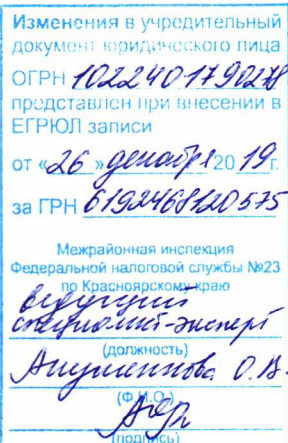 Изменения в учредительный
документ юридического лица
ОГРН 1022401790278
представлен при внесении в
ЕГРЮЛ записи
от «26» декабря 2019 г.
за ГРН 6192468120575
Межрайонная инспекция
Федеральной налоговой службы №23
по Красноярскому краю
ведущий
специалист-эксперт
(должность)
О.В.
(Ф.И.О.)
(подпись)